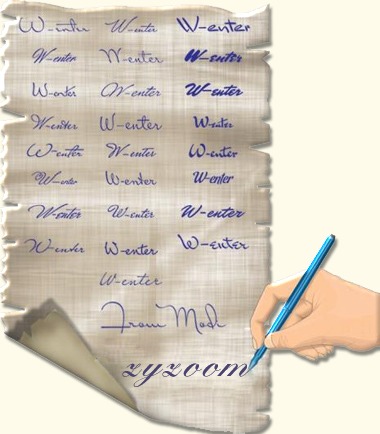 W-enter W-enter W-enter
W-enter W-enter W-enter
W-enter W-enter W-enter
W-enter W-enter W-enter
W-enter W-enter W-enter
W-enter W-enter W-enter
W-enter W-enter W-enter
W-enter W-enter W-enter
W-enter
From Modi
zyzoom